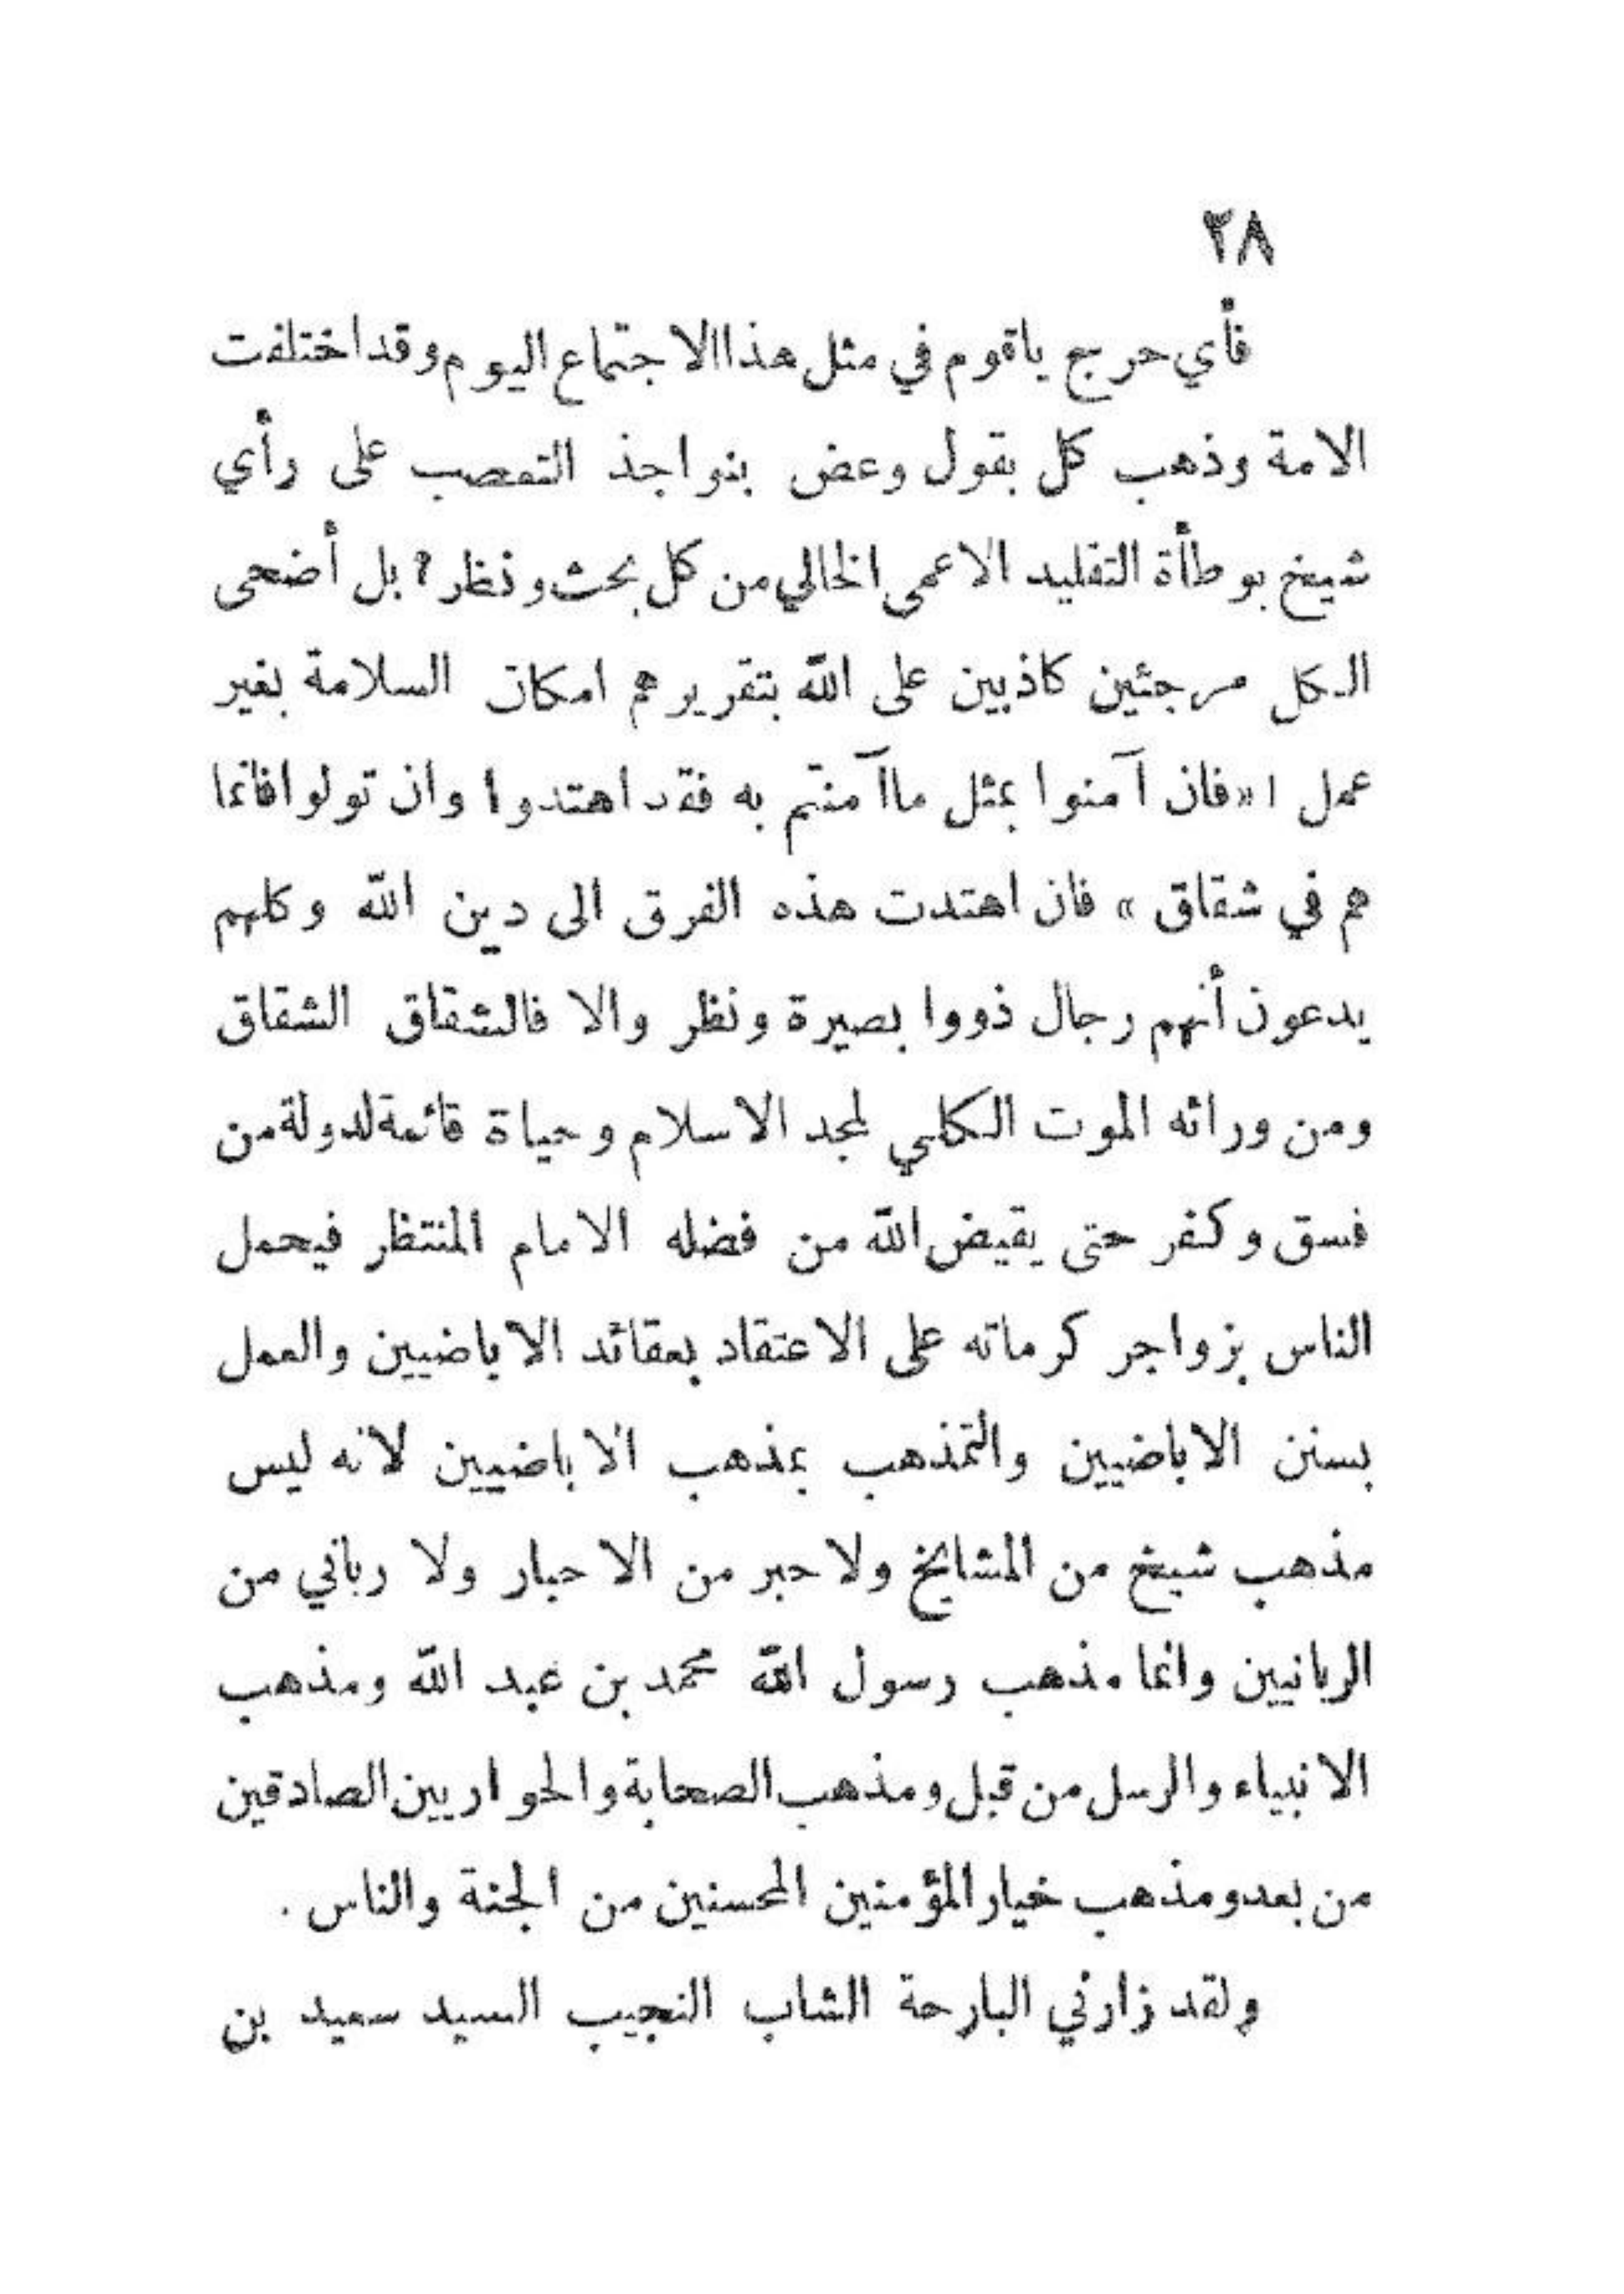 ٣٨
فأي حرج ياقوم في مثل هذا الاجتماع اليوم وقد اختلفت
الامة وذهب كل بقول وعض بنواجذ التعصب على رأي
شيخ بوطأة التقليد الاعمى الخالي من كل بحث ونظر؟ بل أضحى
الكل مرجئين كاذبين على الله بتقريرهم امكان السلامة بغير
عمل ! «فان آمنوا بمثل ماآمنتم به فقد اهتدوا وان تولوا فانما
هم في شقاق » فان اهتدت هذه الفرق الى دين الله وكلهم
يدعون أنهم رجال ذووا بصيرة ونظر والا فالشقاق الشقاق
ومن ورائه الموت الكلي لمجد الاسلام وحياة قائمة لدولة من
فسق وكفر حتى يقيض الله من فضله الامام المنتظر فيحمل
الناس بزواجر كرماته على الاعتقاد بعقائد الاباضيين والعمل
بسنن الاباضيين والتمذهب بمذهب الاباضيين لانه ليس
مذهب شيخ من المشايخ ولا حبر من الاحبار ولا رباني من
الربانيين وانما مذهب رسول الله محمد بن عبد الله ومذهب
الانبياء والرسل من قبل ومذهب الصحابة والحواريين الصادقين
من بعد ومذهب خيار المؤمنين المحسنين من الجنة والناس .
ولقد زارني البارحة الشاب النجيب السيد سعيد بن